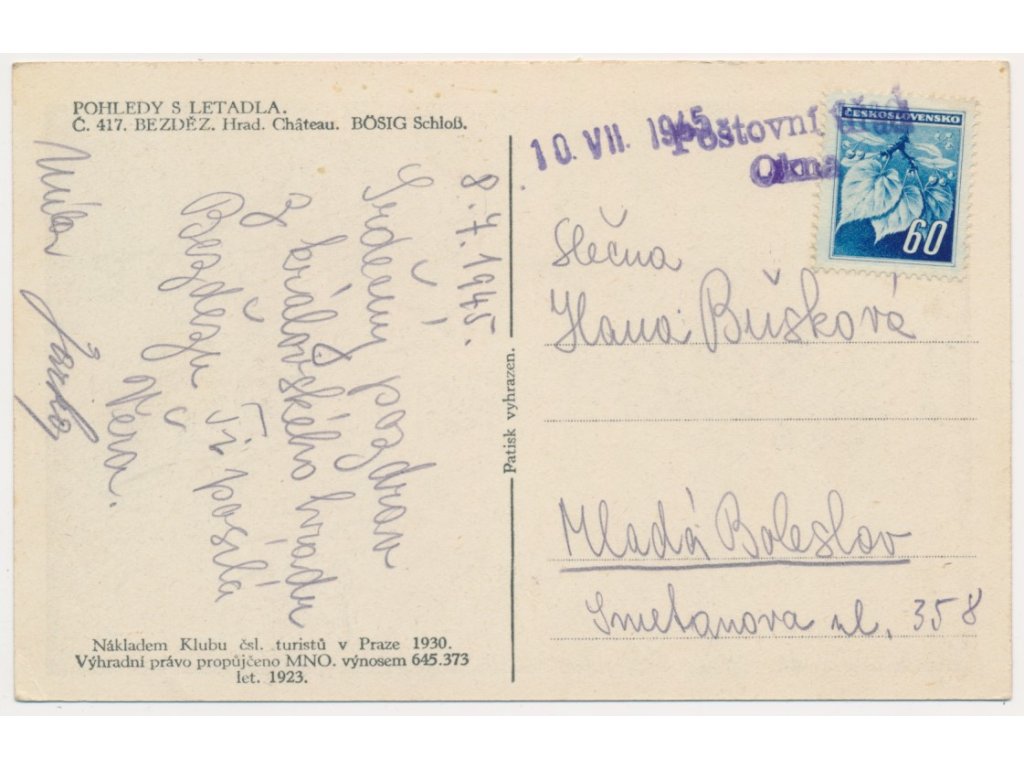 POHLEDY S LETADLA.
Č. 417. BEZDĚZ. Hrad. Château. BÖSIG Schloß.
8.7.1945.
Srdečný pozdrav
z královského hradu
Bezdězu Ti posílá
Věra.
Nákladem Klubu čsl. turistů v Praze 1930.
Výhradní právo propůjčeno MNO. výnosem 645.373
let. 1923.
Patisk vyhrazen.
10. VII. 1945
Poštovní úřad
Okna
ČESKOSLOVENSKO
60
Slečna
Hana Bušková
Mladá Boleslav
Smetanova ul. 358